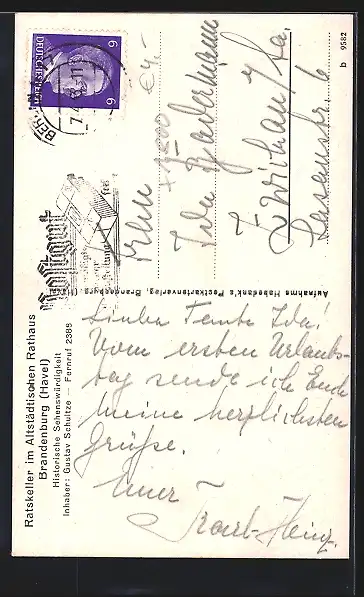 Ratskeller im Altstädtischen Rathaus
Brandenburg (Havel)
Historische Sehenswürdigkeit
Inhaber: Gustav Schultze — Fernruf 2385
Liebe Tante Ida.
Vom ersten Urlaubs-
tag sende ich Euch
meine herzlichsten
Grüße.
Euer
Karl-Heinz.
Aufnahme Habedank's Postkartenverlag, Brandenburg (H
DEUTSCHES REICH
6 6
Postgut
€4,-
Frau
Ida Biedermann
Zwickau/Sa.
b 9582